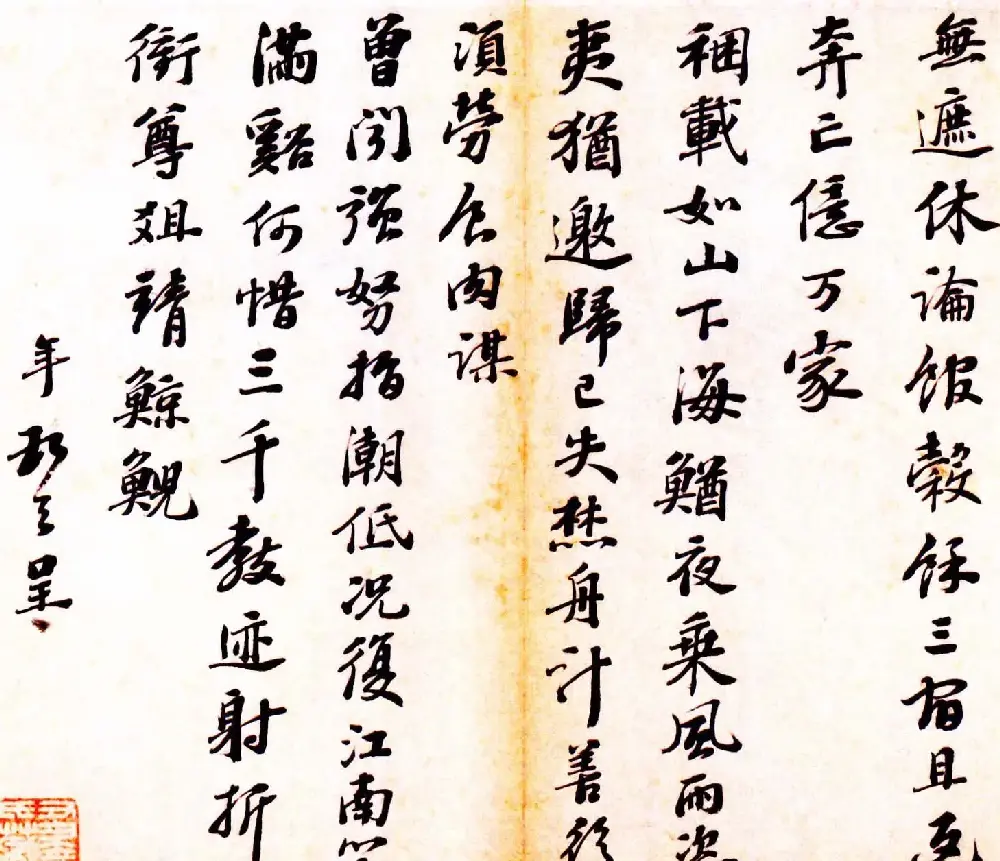 無遮休論館穀餘三宿且
奔亡億万家
捆載如山下海鰌夜乘風雨
夷猶邀歸已失焚舟計善後
須勞食肉謀
曾聞強弩指潮低況復江南
滿谿何惜三千教迹射折
衝尊俎靖鯨鯢
年 呈